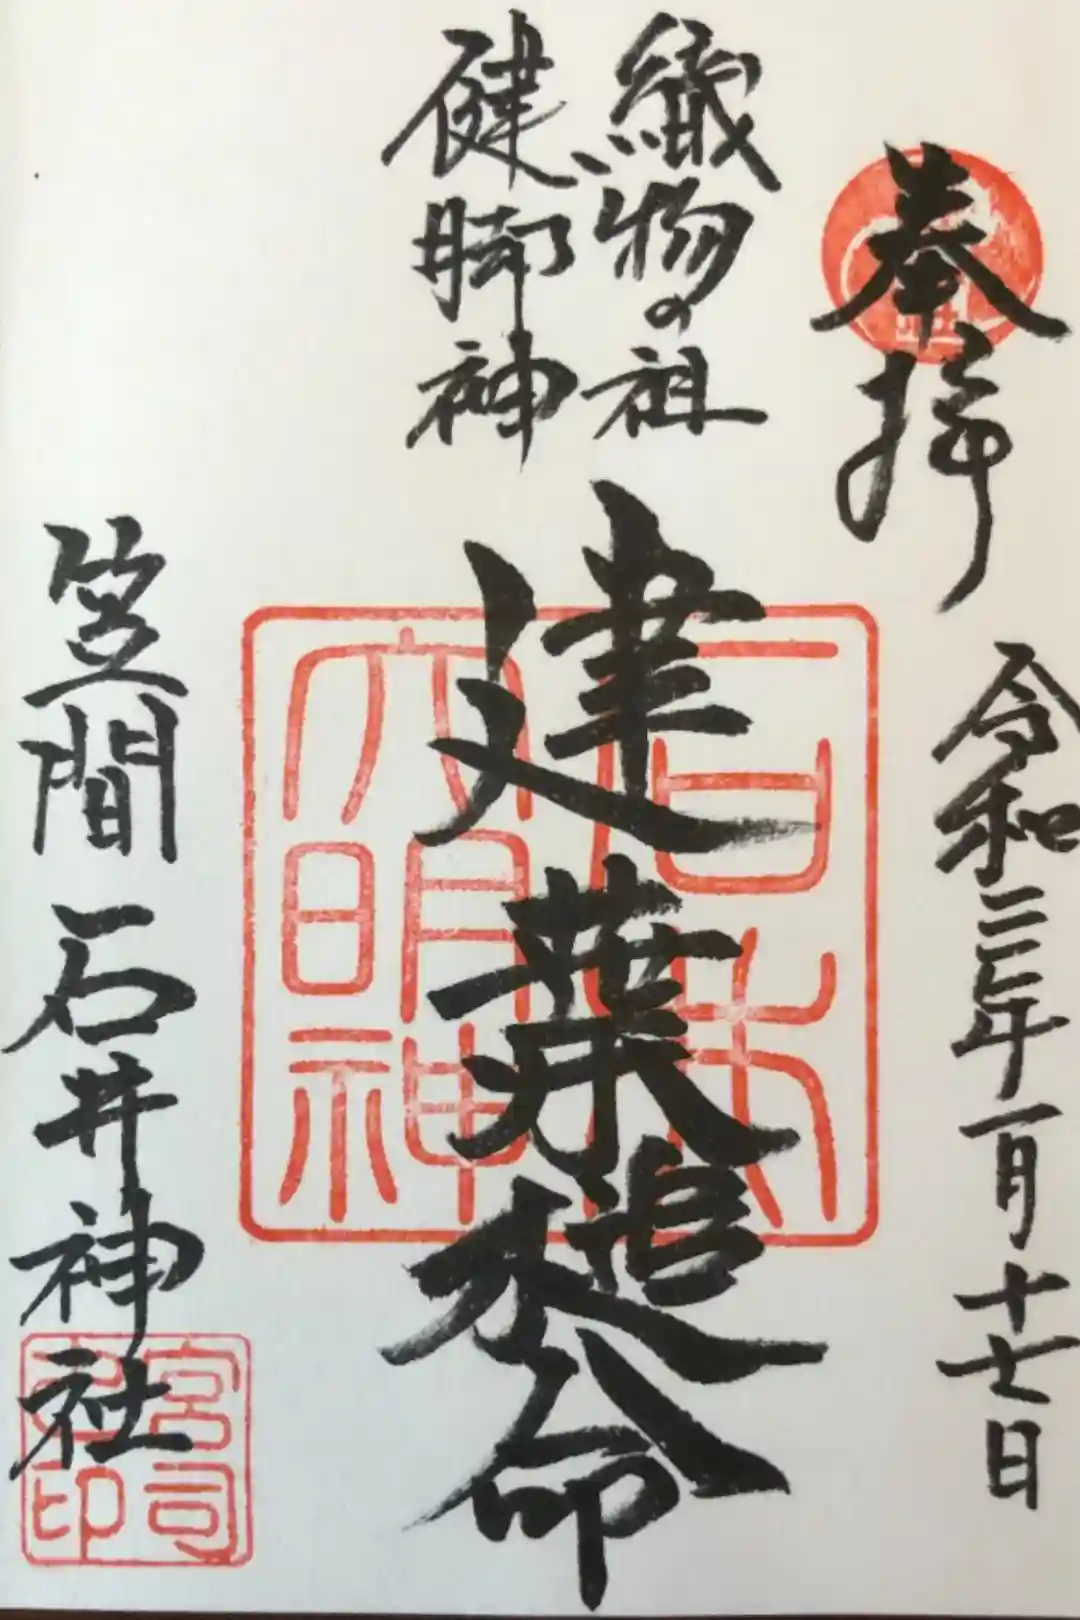 奉拝
令和三年一月十七日
織物の祖
健脚神
建葉槌命
大明神
笠間 石井神社
宮司
之印